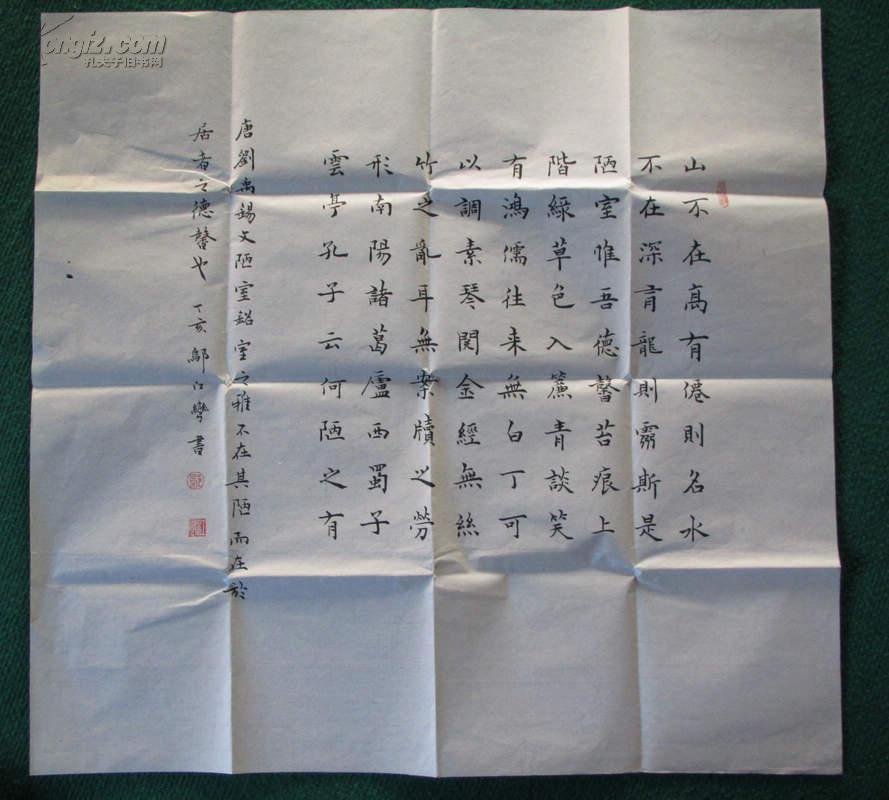 山不在高有僊則名水
不在深有龍則靈斯是
陋室惟吾德馨苔痕上
階綠草色入簾青談笑
有鴻儒往來無白丁可
以調素琴閱金經無絲
竹之亂耳無案牘之勞
形南陽諸葛廬西蜀子
雲亭孔子云何陋之有
唐劉禹錫文陋室銘室之雅不在其陋而在於
居者之德馨也 丁亥鄔江 書
Kongfz.com
孔夫子旧书网